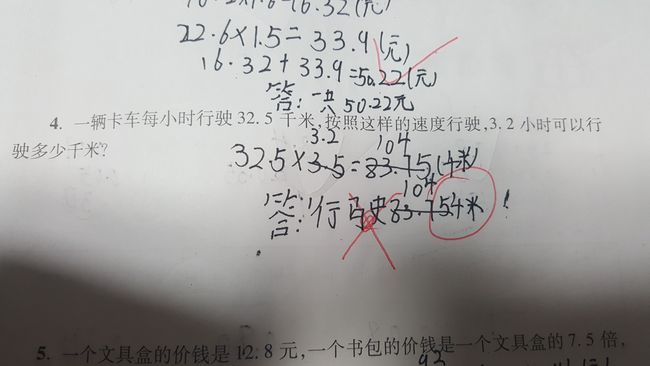 22.6×1.5=33.9(元)
16.32+33.9=50.22(元)
答:一共50.22元
4. 一辆卡车每小时行驶 32.5 千米,按照这样的速度行驶,3.2 小时可以行
驶多少千米?
3.2 104
32.5×3.5=83.75(千米)
104
答:行驶83.75千米
5. 一个文具盒的价钱是 12.8 元,一个书包的价钱是一个文具盒的 7.5 倍,